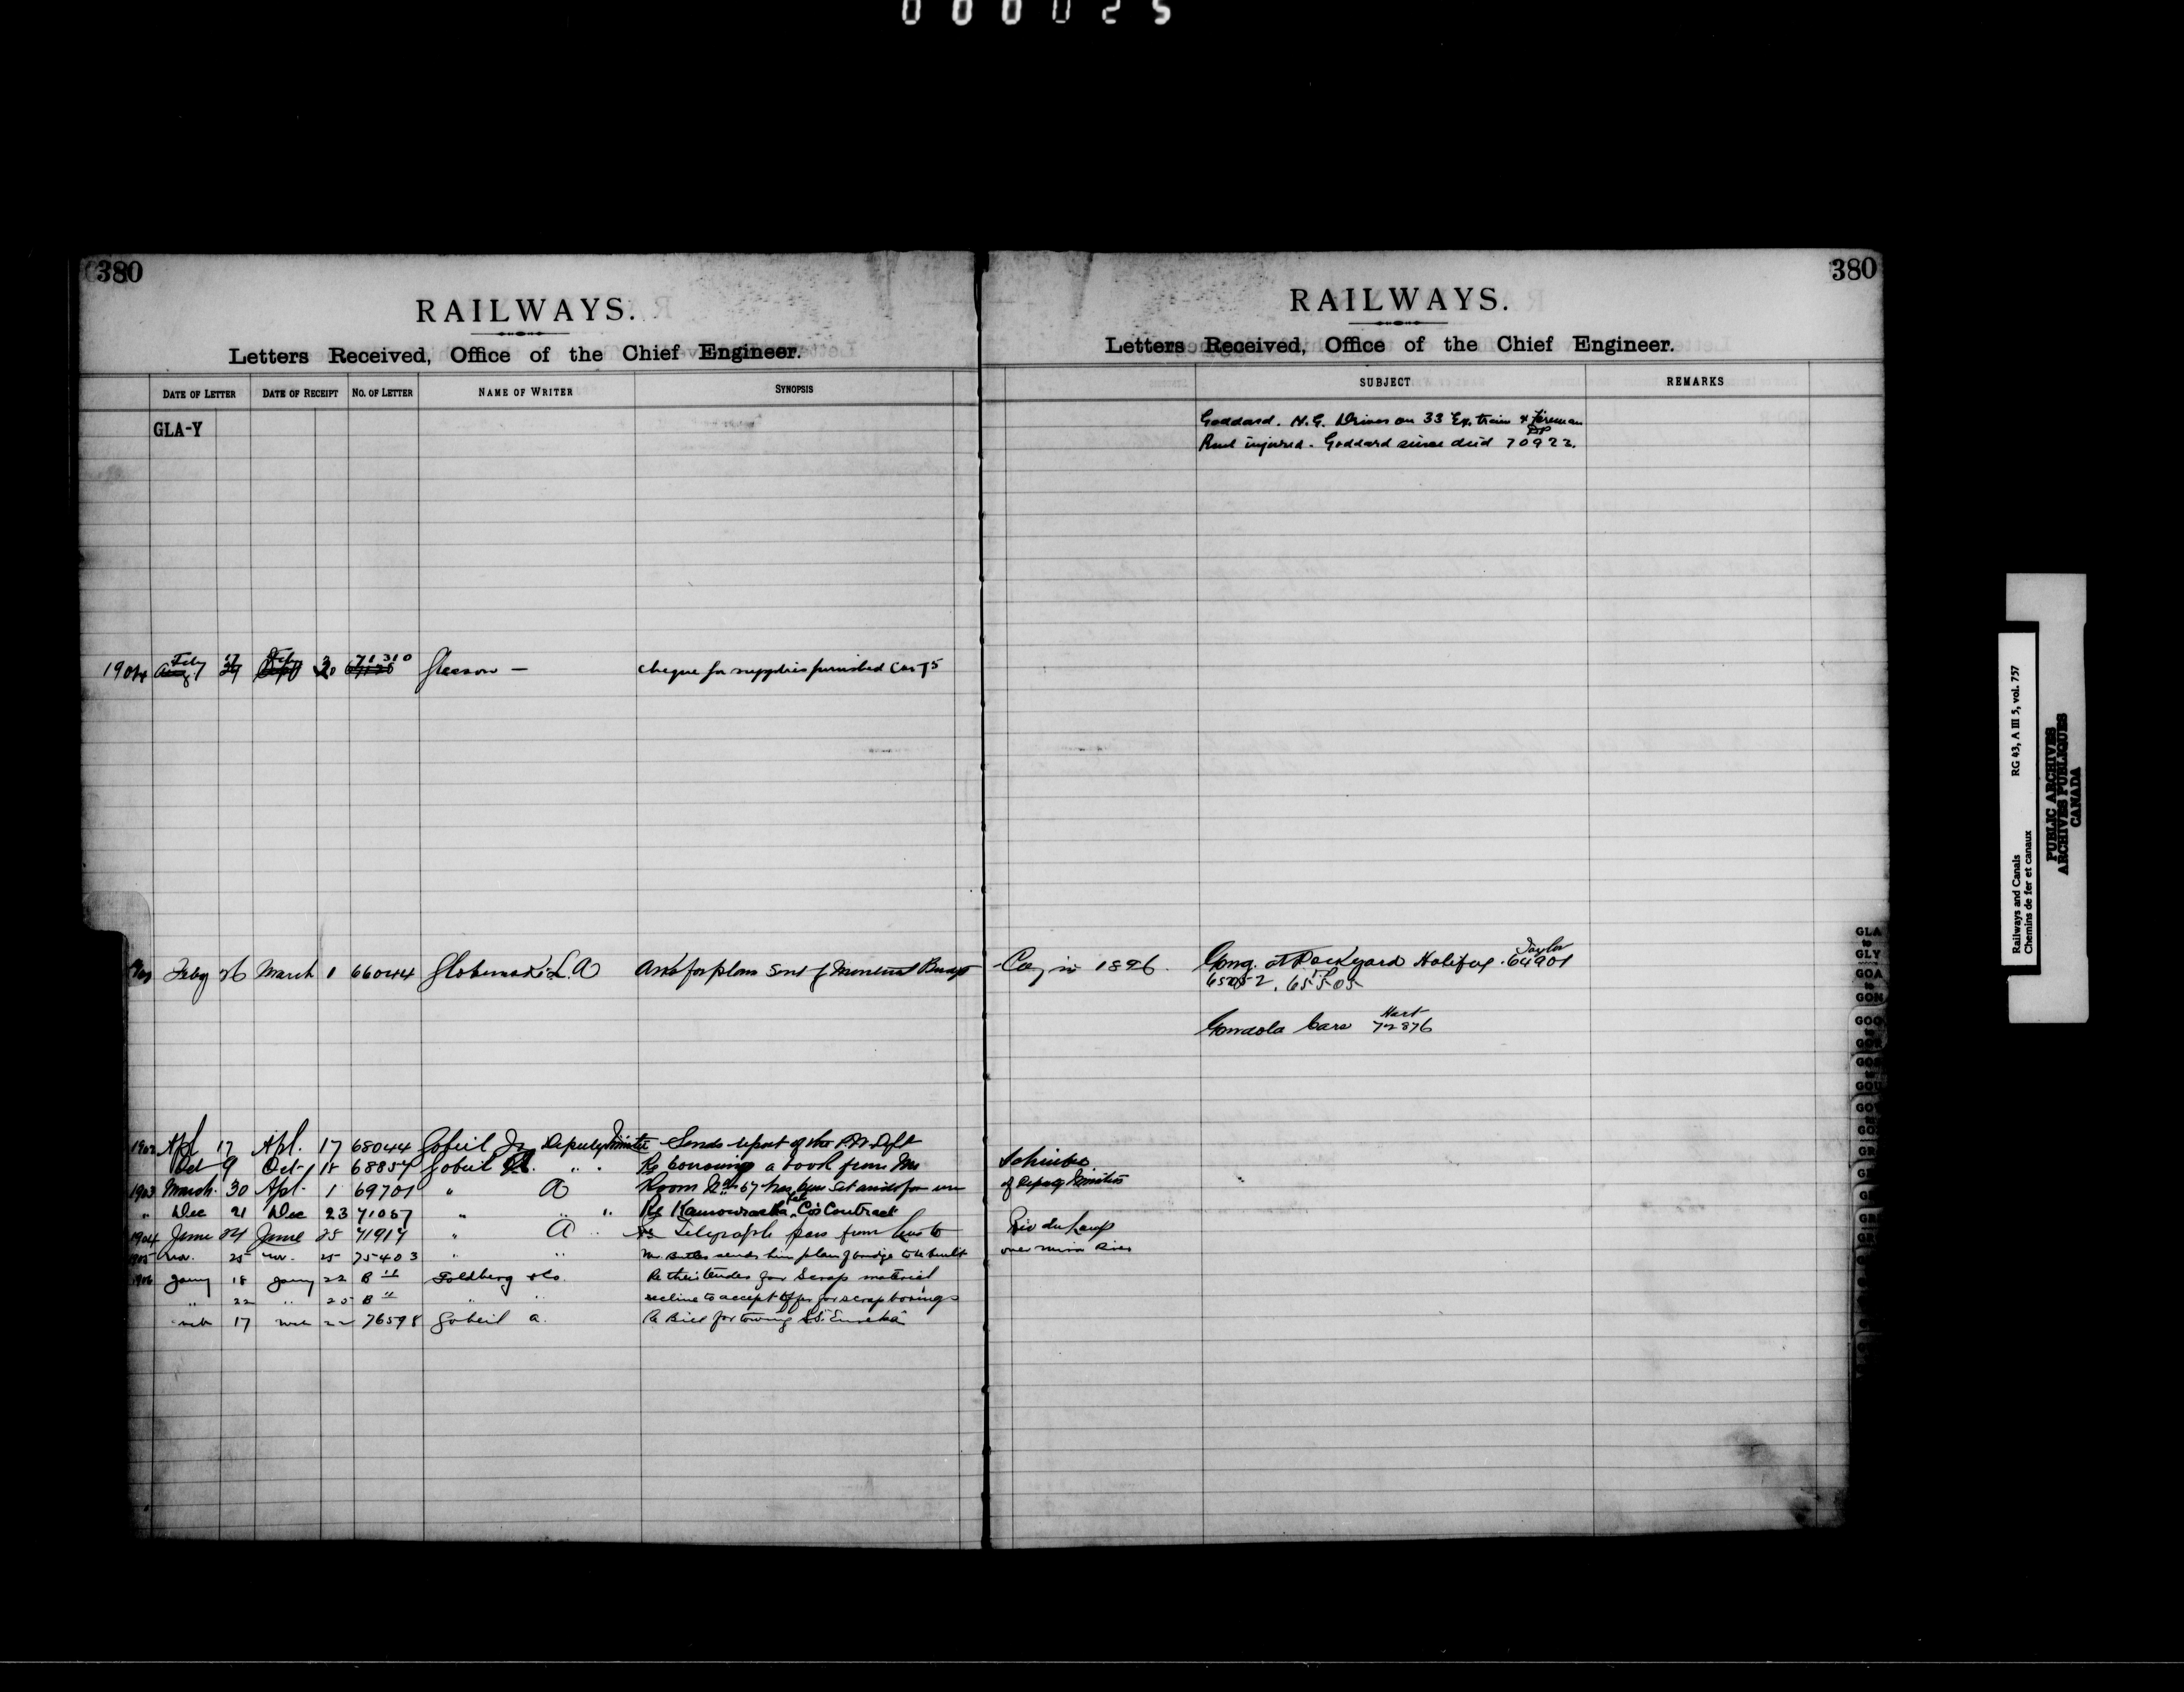 000025
380
RAILWAYS.
Letters Received, Office of the Chief Engineer.
DATE OF LETTER DATE OF RECEIPT NO. OF LETTER NAME OF WRITER SYNOPSIS
GLA-Y
1904 Feby 17 Feby 20 71310 Gleason — cheque for supplies furnished Car 75
Feby 26 March 1 66044 L. A Asks for plan sent Montreal Bridge
1902 Apl 17 Apl. 17 68044 Gobeil Deputy Minister Sends report of the
Oct 9 Oct 18 68857 Gobeil A. " " Re borrowing a book from Mr
1903 March 30 Apl. 1 69701 " A Room No 67 has been set aside for use
" Dec 21 Dec 23 71057 " " " Re Kamouraska Tel Co's Contract
1904 June 24 June 25 71917 " A " Re Telegraph pass from to
1905 Nov. 25 Nov. 25 75403 " " Mr. Butler sends him plan of bridge to be built
1906 Jany 18 Jany 22 B Goldberg & Co. Re their tender for Scrap material
" 22 " 25 B " " " decline to accept offer for scrap borings
17 22 76598 Gobeil A. Re Bill for towing S.S. "Eureka"
380
RAILWAYS.
Letters Received, Office of the Chief Engineer.
SUBJECT REMARKS
Goddard. N.G. Driver on 33 Ex. train & fireman
injured. Goddard since died 70922.
Co, in 1896. Gong. at Dockyard Halifax. Taylor 64901
65505
Gondola Cars Hart 72876
Schreiber
of Deputy Minister
Riv du Loup
over Mira River
GLA
to
GLY
GOA
to
GON
GOO
Railways and Canals RG 43, A III 5, vol. 757
Chemins de fer et canaux
PUBLIC ARCHIVES
ARCHIVES PUBLIQUES
CANADA